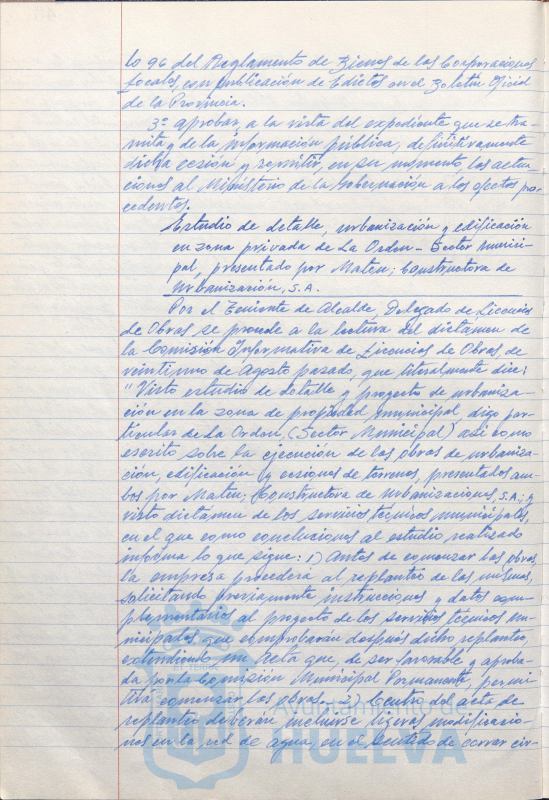 lo 96 del Reglamento de Bienes de las Corporaciones
Locales, con publicación de Edictos en el Boletín Oficial
de la Provincia.
3º aprobar, a la vista del expediente que se tra-
mita y de la información pública, definitivamente
dicha cesión y remitir, en su momento, las actua
ciones al Ministerio de la Gobernación a los efectos pro
cedentes.
Estudio de detalle, urbanización y edificación
en zona privada de La Orden - Sector Munici-
pal, presentado por Mateu; Constructora de
Urbanización, S.A.
Por el Teniente de Alcalde, Delegado de Licencias
de Obras, se procede a la lectura del dictámen de
la Comisión Informativa de Licencias de Obras, de
veintiuno de Agosto pasado, que literalmente dice:
"Visto estudio de detalle y proyecto de urbaniza-
ción en la zona de propiedad municipal digo par-
ticular de La Orden, (Sector Municipal) así como
escrito sobre la ejecución de las obras de urbaniza-
ción, edificación y cesiones de terrenos, presentados am-
bos por Mateu; Constructora de Urbanizaciones, S.A.; y
visto dictámen de los servicios técnicos municipales,
en el que como conclusiones al estudio realizado
informa lo que sigue: 1) Antes de comenzar las obras,
la empresa procederá al replanteo de las mismas,
solicitando previamente instrucciones y datos com-
plementarios al proyecto de los servicios técnicos mu-
nicipales que comprobarán después dicho replanteo,
extendiendo un Acta que, de ser favorable y aproba-
da por la Comisión Municipal Permanente, permi-
tirá comenzar las obras. 2) Dentro del acta de
replanteo deberán incluirse ligeras modificacio-
nes en la red de agua, en el sentido de cerrar cir-
Ayuntamiento de
HUELVA